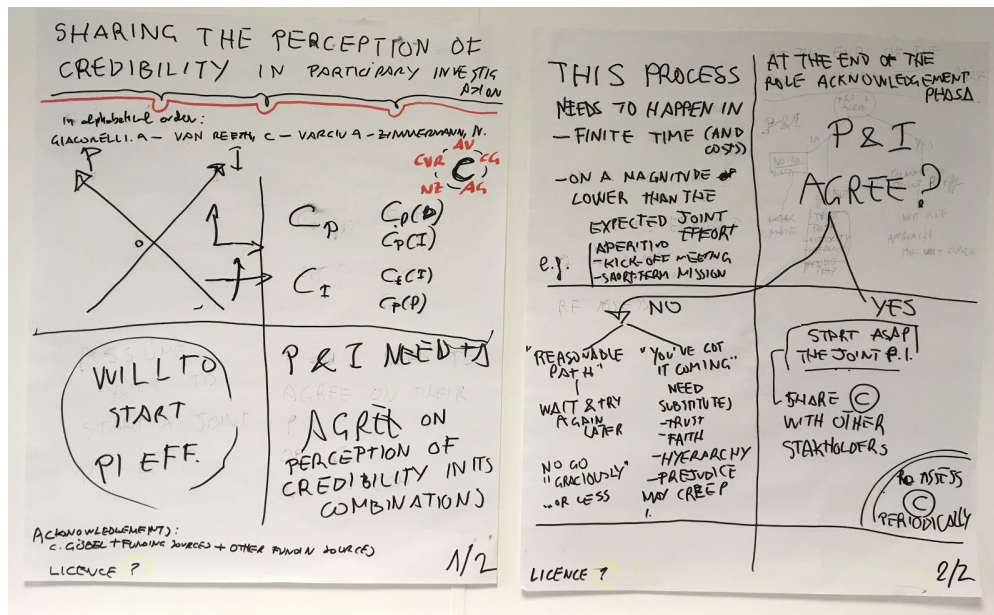 SHARING THE PERCEPTION OF
CREDIBILITY IN PARTICIPARY INVESTIG
ATION
In alphabetical order:
GIACOMELLI. A - VAN REETH, C - VARGIU A - ZIMMERMANN, N.
P
I
AV
CVR
CG
C
NZ
AG
CP
CP(I)
CI
CI(I)
CP(P)
WILL TO
START
PI EFF.
P & I NEED TO
AGREE ON
PERCEPTION OF
CREDIBILITY IN ITS
COMBINATIONS
ACKNOWLEDGEMENTS:
C. GÖBEL + FUNDING SOURCES + OTHER FUNDIN SOURCES
LICENCE ?
1/2
THIS PROCESS
NEEDS TO HAPPEN IN
- FINITE TIME (AND
COSTS)
- ON A MAGNITUDE
LOWER THAN THE
EXPECTED JOINT
EFFORT
e.g.
APERITIVO
- KICK-OFF MEETING
- SHORT-TERM MISSION
AT THE END OF THE
ROLE ACKNOWLEDGEMENT
PHASE
P & I
AGREE?
NO
"REASONABLE
PATH"
WAIT & TRY
AGAIN
LATER
NO GO
"GRACIOUSLY"
...OR LESS
"YOU'VE GOT
IT COMING"
NEED
SUBSTITUTES
- TRUST
- FAITH
- HYERARCHY
- PREJUDICE
MAY CREEP
YES
START ASAP
THE JOINT P.I.
SHARE C
WITH OTHER
STAKHOLDERS
RE ASSESS
C
PERIODICALLY
LICENCE ?
2/2